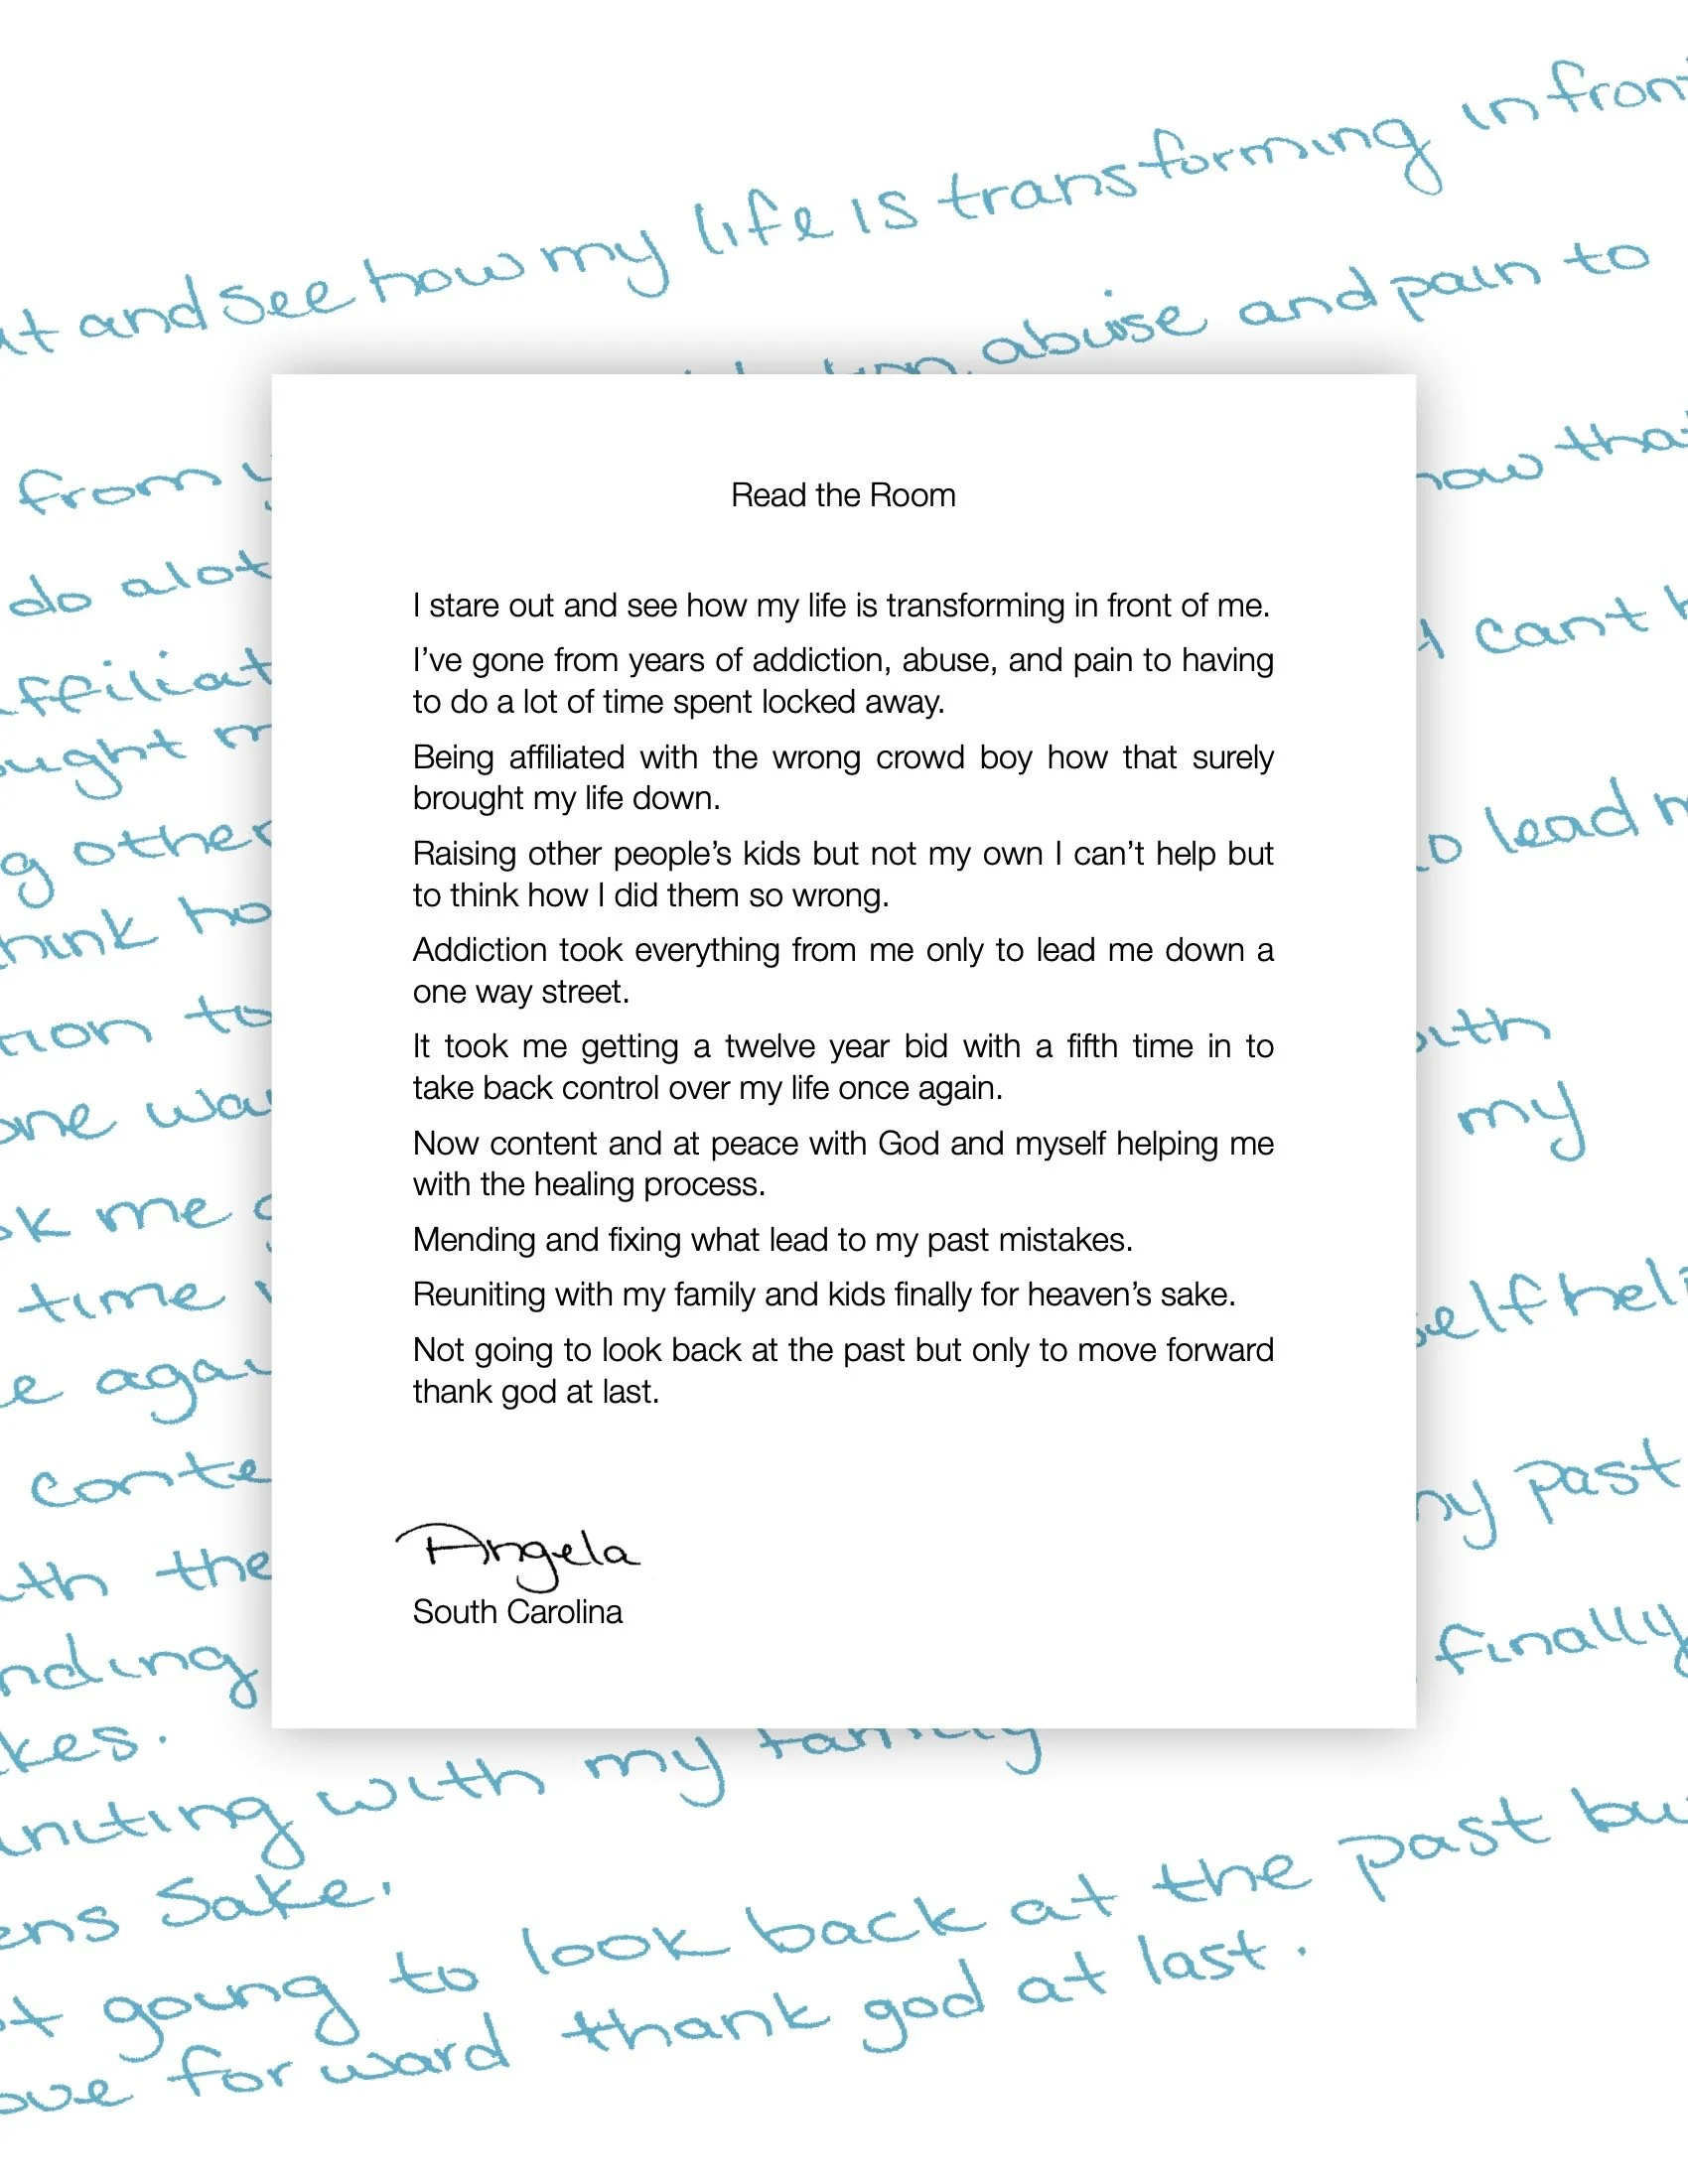 ut and see how my life is transforming in front
abuse and pain to
from
now that
do alot
I cant
ffiliat
ought m
g other
to lead m
think ho
tion to
with
one wa
my
ok me
time
self hel
e agai
conte
my past
ith the
finally
nding
kes.
niting with my family
ens sake.
t going to look back at the past bu
ove forward thank god at last.
Read the Room
I stare out and see how my life is transforming in front of me.
I've gone from years of addiction, abuse, and pain to having
to do a lot of time spent locked away.
Being affiliated with the wrong crowd boy how that surely
brought my life down.
Raising other people's kids but not my own I can't help but
to think how I did them so wrong.
Addiction took everything from me only to lead me down a
one way street.
It took me getting a twelve year bid with a fifth time in to
take back control over my life once again.
Now content and at peace with God and myself helping me
with the healing process.
Mending and fixing what lead to my past mistakes.
Reuniting with my family and kids finally for heaven's sake.
Not going to look back at the past but only to move forward
thank god at last.
Angela
South Carolina